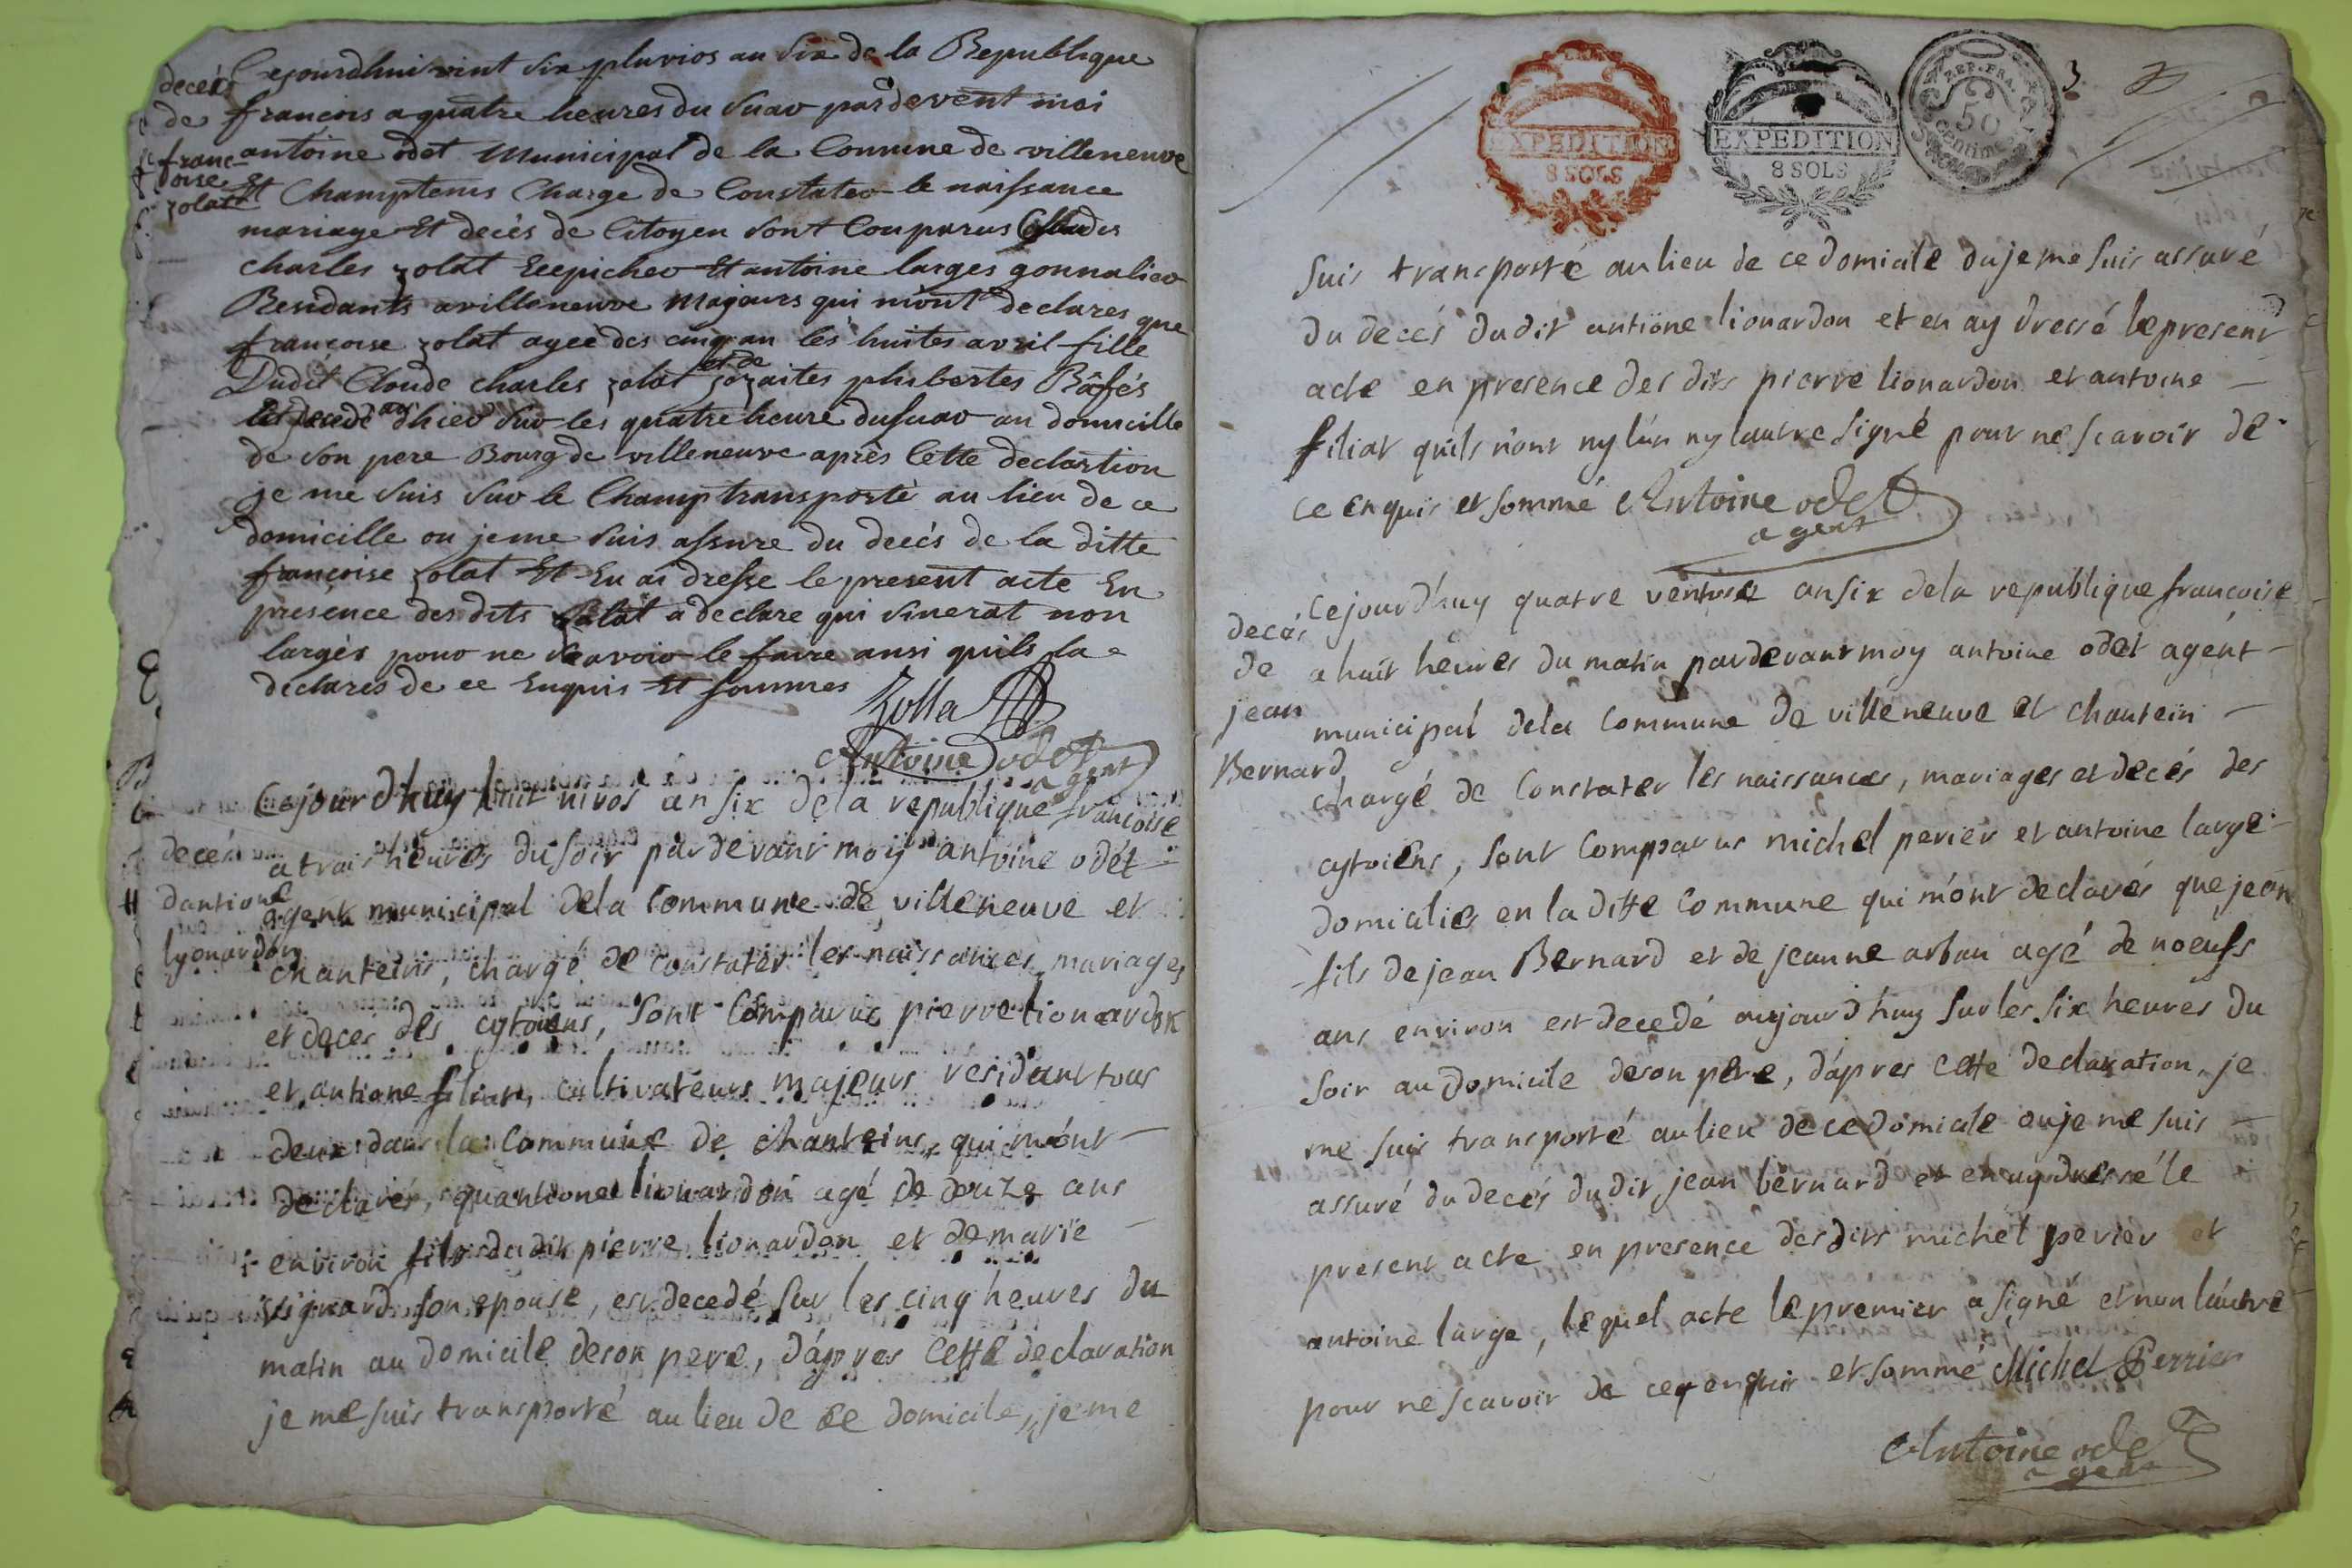 Cejourdhui vint six pluvios an six de la Republique
decés
de
francois a quatre heures du suav pardevent moi
franc
oise
zolat
antoine odet municipal de la Comune de villeneuve
Et Champtenis Charge de Constatev le naissance
mariage Et decès de Citoyen sont Comparus Claudes
charles zolat Et antoine larges
Residants a villeneuve majeurs qui m'ont declares que
françoise zolat agee des cinq an les huites avril fille
et de
Dudit Cloude charles zolat
decede dhiev suv les quatre heure du suav au domicille
de son pere Bourg de villeneuve après Cette declartion
je me suis suv le Champ transportè au lieu de ce
domicille ou je me suis assure du decés de la ditte
françoise zolat Et En ai dresse le present acte En
presence des dits zolat a declare qui sinerat non
largés pouv ne scavoiv le faire ansi quils la
declares de ce Enquis Et sommes
Zolla
Antoine odet
agent
Cejourdhuy huit nivos an six de la republique françoise
decés
dantione
lyonardon
a trois heures du soir pardevant moy antoine odét
agent municipal de la Commune de villeneuve et
chanteins, chargé de Constater les naissances, mariages
et deces des cytoiens, sont Comparus pierre lionardon
et antione filiat, cultivateurs majeurs residant tous
deux dans la Commune de chanteins, qui m'ont
declarés, quantione lionardon agé de douze ans
environ fils dudit pierre lionardon et de marie
son epouse, est decedé sur les cinq heures du
matin au domicile de son pere, d'apres Cette declaration
je me suis transporté au lieu de ce domicile, je me
EXPEDITION
8 SOLS
EXPEDITION
8 SOLS
REP. FRA.
50
centimes
3
suis transporté au lieu de ce domicile ou je me suis assuré
du decés dudit antione lionardon et en ay dressé le present
acte en presence des dits pierre lionardon et antoine
filiat quils n'ont ny lun ny lautre signé pour ne scavoir de
ce enquis et sommé Antoine odet
agent
decés
de
jean
Bernard
Cejourd'huy quatre ventose an six de la republique francoise
a huit heures du matin pardevant moy antoine odet agent
municipal de la Commune de villeneuve et chantein
chargé de Constater les naissances, mariages et decés des
cytoiens, sont Comparus michel perier et antoine large
domicilies en la ditte Commune qui m'ont declarés que jean
fils de jean Bernard et de jeanne arban agé de noeufs
ans environ est decedé aujourd'huy sur les six heures du
soir au domicile de son pere, d'apres cette declaration je
me suis transporté au lieu de ce domicile ou je me suis
assuré du decés dudit jean bernard et en ay dressé le
present acte en presence des dits michel perier et
antoine large, lequel acte le premier a signé et non lautre
pour ne scavoir de ce enquis et sommé Michel Perrier
Antoine odet
agent